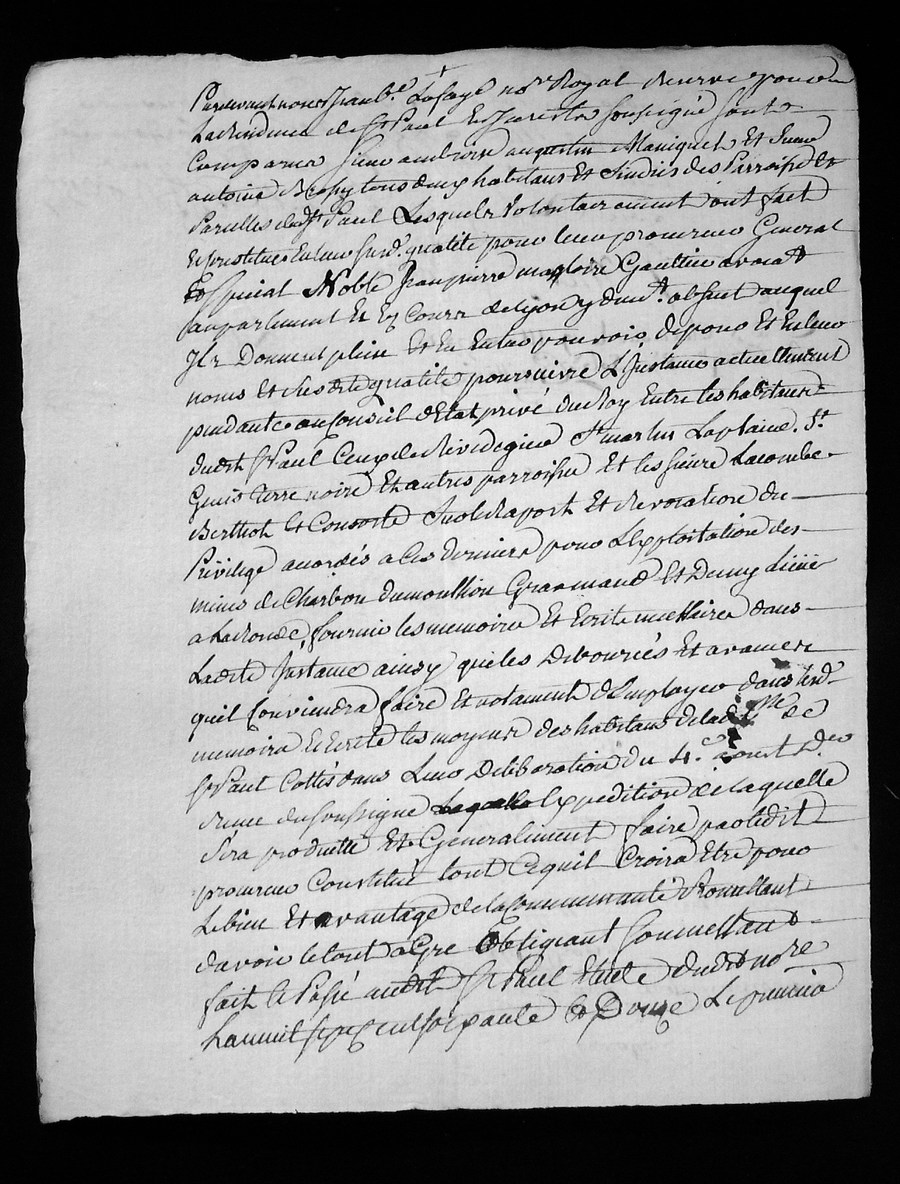 Pardevant nous Jean Bte Lafay no.re Royal Reservé pour
La Residence de St Paul En Jarestz soussigné sont
Comparus Sieur ambroise augustin Maniquet Et Sieur
antoine Bethy tous deux habitans Et Sindics des Parroisse Et
Parcelles dudt St Paul Lesquels Volontairement ont fait
Et Constitue En leur susd. qualité pour leur procureur General
Et Special Noble Jean pierre magloire Gaultier avocat
au parlement Et Cours de lyon y demt. absent auquel
Ils Donnent plein Et En Entier pouvoir de pour Et En leur
noms Et susdite qualité poursuivre L'Instance actuellement
pendante au Conseil d'Etat privé du Roy Entre les habitans
dudit St Paul Ceux de Rivedegier St martin Laplaine, St.
Genis terre noire Et autres parroisses Et les sieurs Lacombe
Berthot Et Consorts Sur le Raport Et Revocation du
Privilege accordés a Ces derniers pour L'Exploitation des
mines de Charbon du mouillon Gravenand Et Demy lieüe
a La Ronde, fournir les memoires Et Ecrits necessaires dans
Ladite Instance ainsy que les Deboursés Et avances
quil Conviendra faire Et notament d'Employer dans lesd.
memoires Et Ecrits les moyens des habitans de lad. de
St Paul Cottés dans Leur Deliberation du 4.e
Reçue du soussigné Laquelle Expedition de laquelle
Sera produitte Et Generalement faire par ledit
procureur Constitué tout Ce quil Croira Etre pour
Le bien Et avantage de la Communauté Promettant
davoir le tout a Gre Obligeant Soumettant
fait Et Passé audit St Paul Etude dudit no.re
Lan mil sept Cent soixante Et Douze Le premier